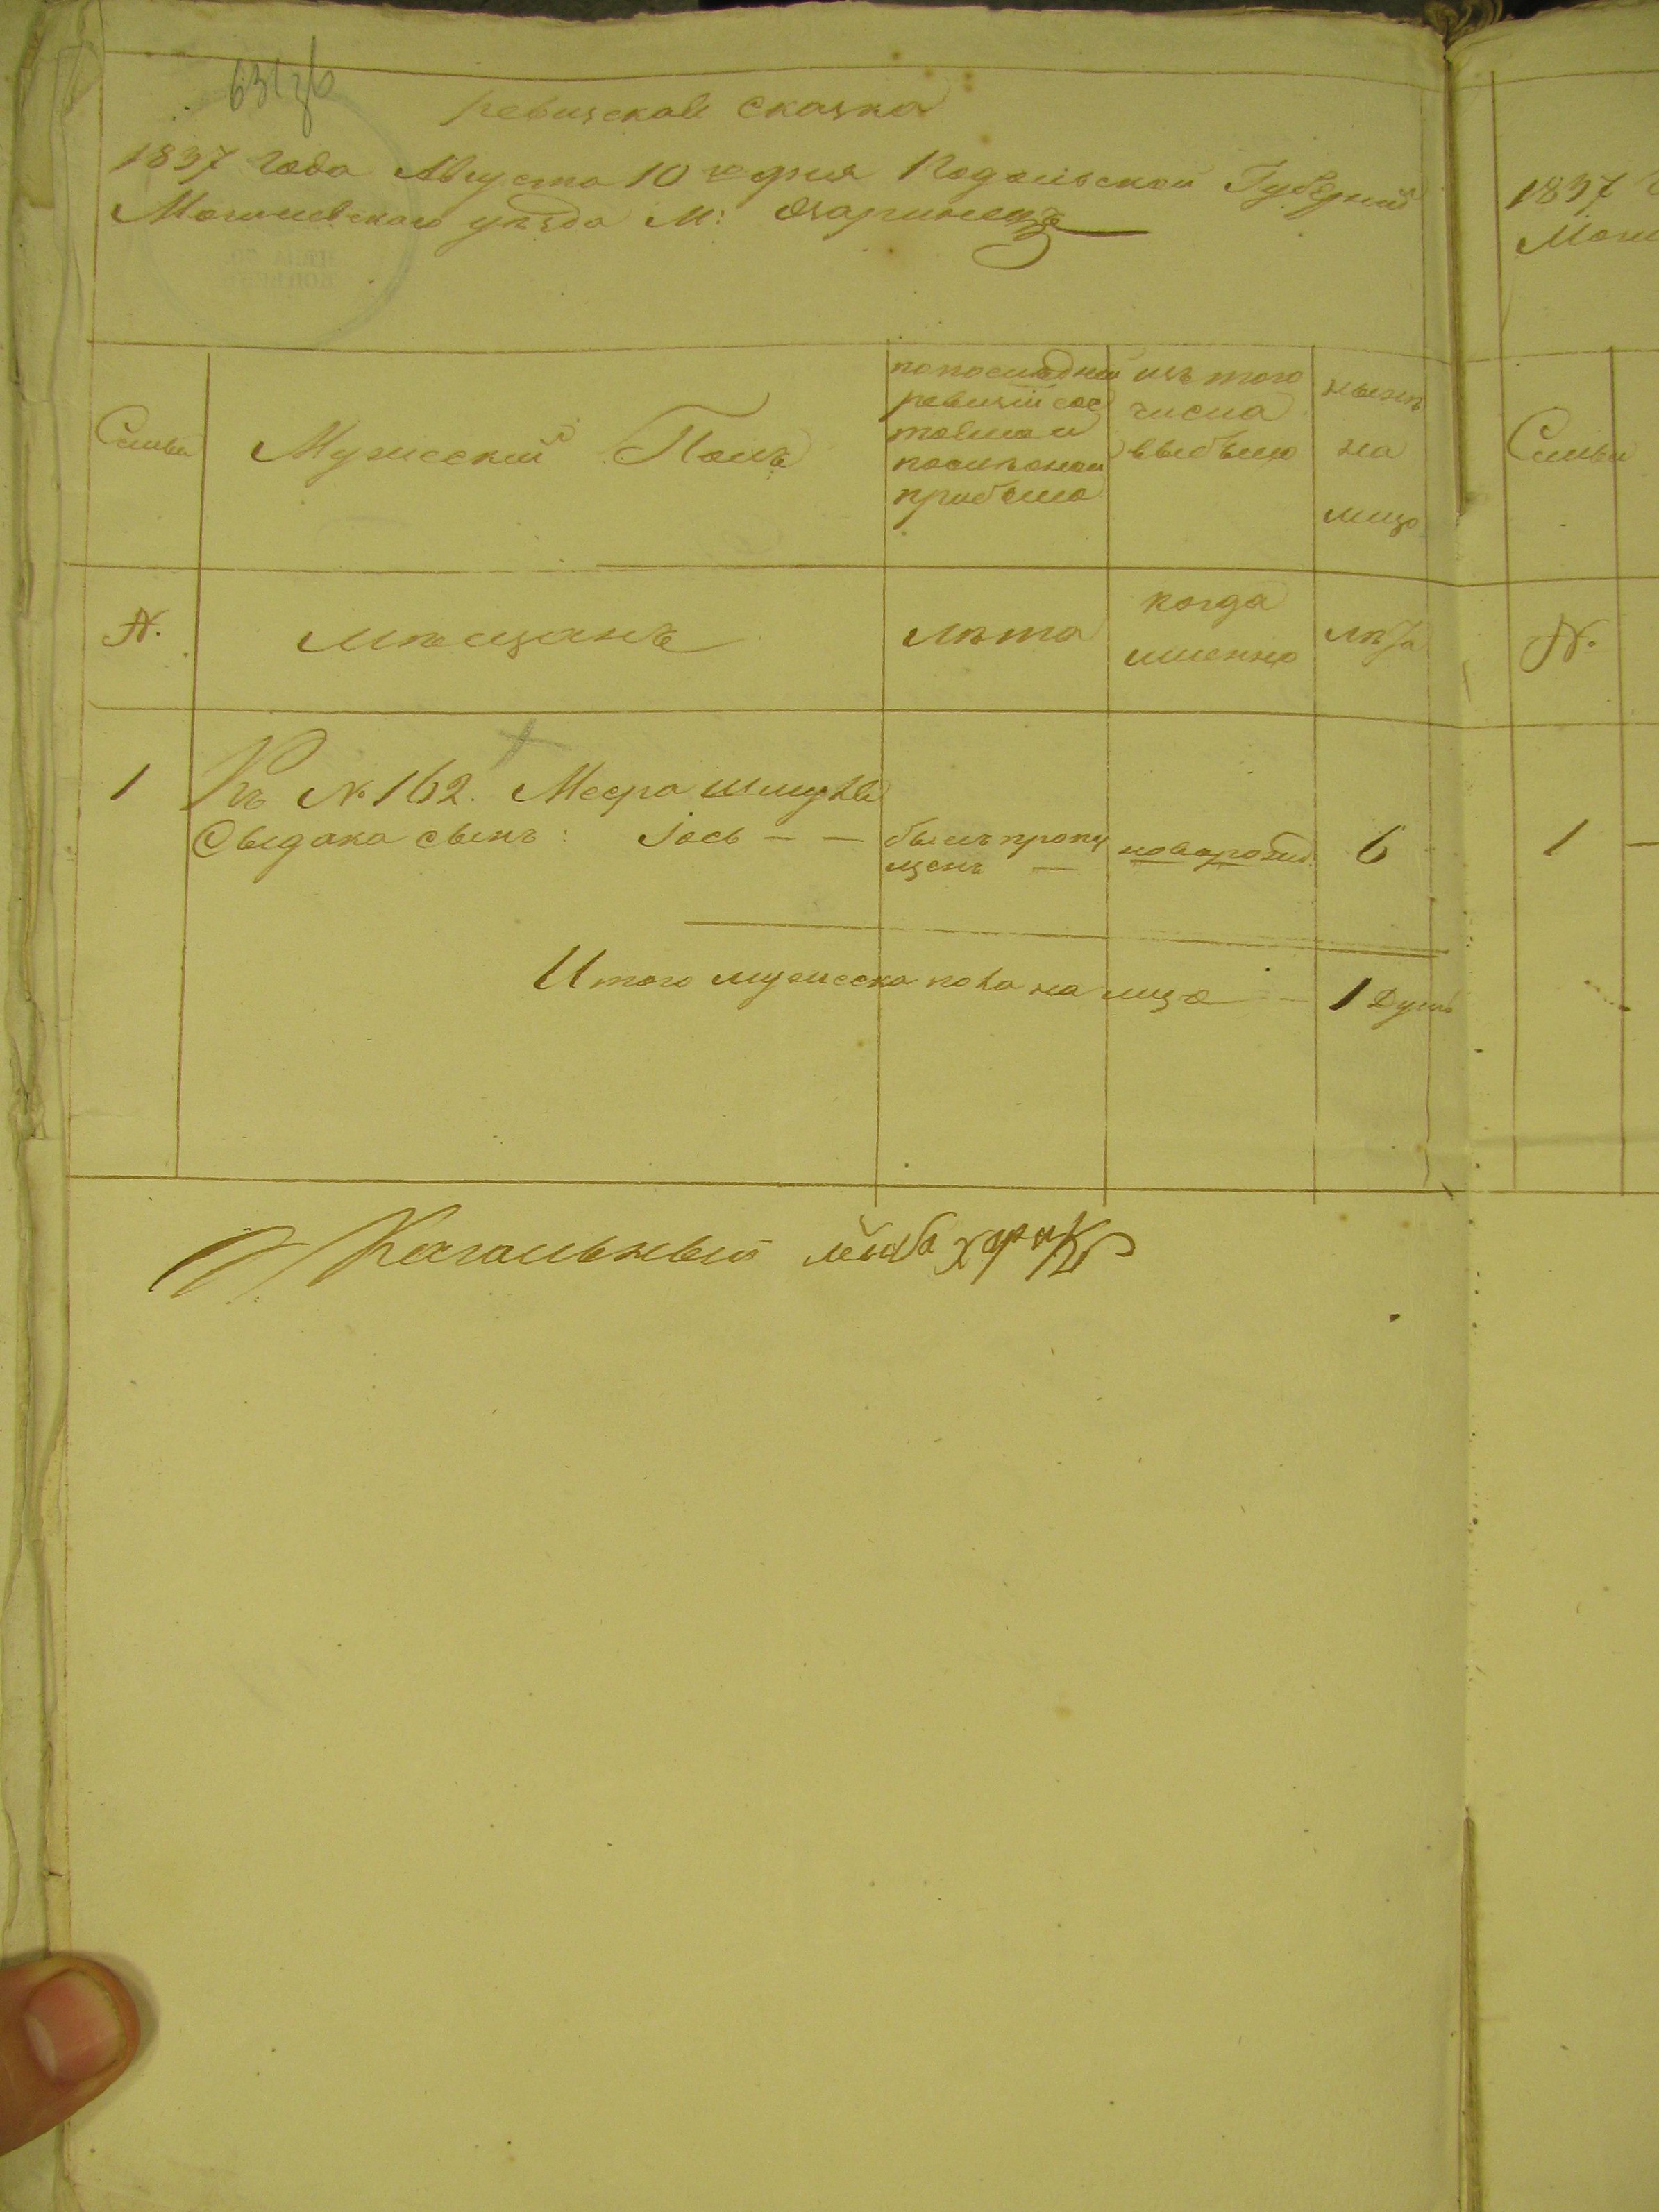 631 зв
ревизская сказка
1837 года Августа 10 го дня Подольской Губерний
Могилевскаго уѣзда М: Озаринецъ
Семьи
Мужеский Полъ
по последней ревизiи состояло и после оной прибыло
изъ того числа выбыло
нынѣ на лицо
№.
мѣщанъ
лѣта
когда именно
лѣта
1 Къ № 162. Меера Шмуля
Сыдака сынъ: Iось — — былъ пропущенъ — новорожд. 6
Итого мужеска пола на лицо — 1 душъ
Кагальный лейба
1837
Моги
Семьи
№.
1 —